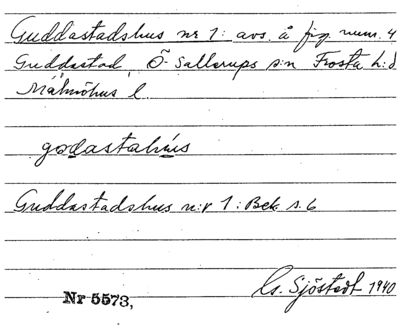 Guddastadshus nr 1: avs. å fig. num. 4
Guddastad, Ö. Sallerups s:n Frosta h:d
Malmöhus l.
godastahús
Guddastadshus n:r 1: Bek s. 6
G. Sjöstedt 1940
Nr 5573,